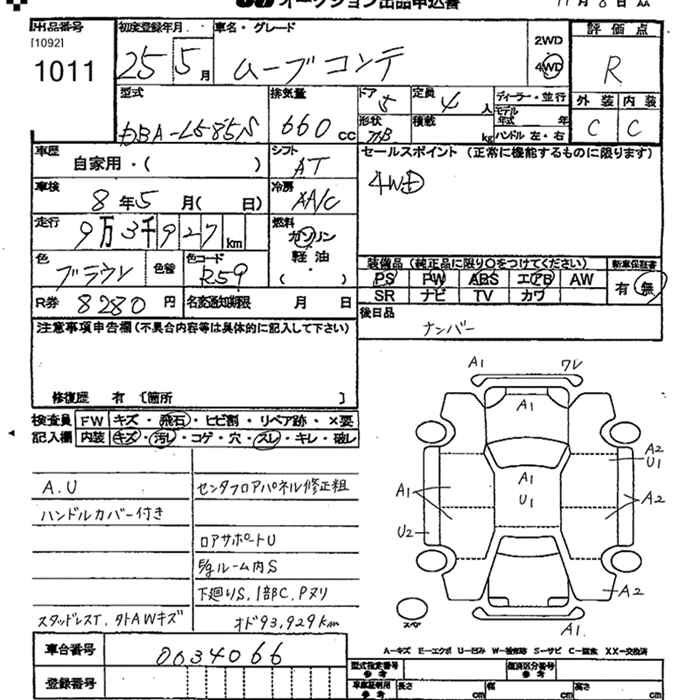 オークション出品申込書 11月8日
出品番号 初度登録年月 車名・グレード 評価点
[1092]
1011 25 5月 ムーブコンテ 2WD 4WD R
型式 排気量 ドア 定員 ディーラー・並行 外装 内装
DBA-L585S 660cc 5 4人 モデル年式 年 C C
形状 積載 kg ハンドル 左・右
車歴 シフト セールスポイント (正常に機能するものに限ります)
自家用・( ) AT 4WD
車検 冷房
8年5月( 日) AA/C
走行 燃料
9万3千927km ガソリン
軽油
( )
色 色替 色コード 装備品(純正品に限り○をつけてください) 新車保証書
ブラウン R59 PS PW ABS エアB AW 有 無
SR ナビ TV カワ
R券 8280円 名変通知期限 月 日 後日品
ナンバー
注意事項申告欄(不具合内容等は具体的に記入して下さい)
修復歴 有 [箇所 ]
検査員 FW キズ・飛石・ヒビ割・リペア跡・×要
記入欄 内装 キズ・汚レ・コゲ・穴・スレ・キレ・破レ
A1 ワレ
A1
A2
U1
A1
U1
A1
A2
U2
A2
A1
スペア
A.U センタフロアパネル修正粗
ハンドルカバー付き
ロアサポートU
S/gルーム内S
下廻りS, 1部C, Pヌリ
スタッドレスT, 外AWキズ オド93,929km
A-キズ E-エクボ U-凹み W-補修跡 S-サビ C-腐食 XX-交換済
車台番号 0034066
登録番号
型式指定番号 類別区分番号
車庫証明用参考 長さ cm 幅 cm 高さ cm